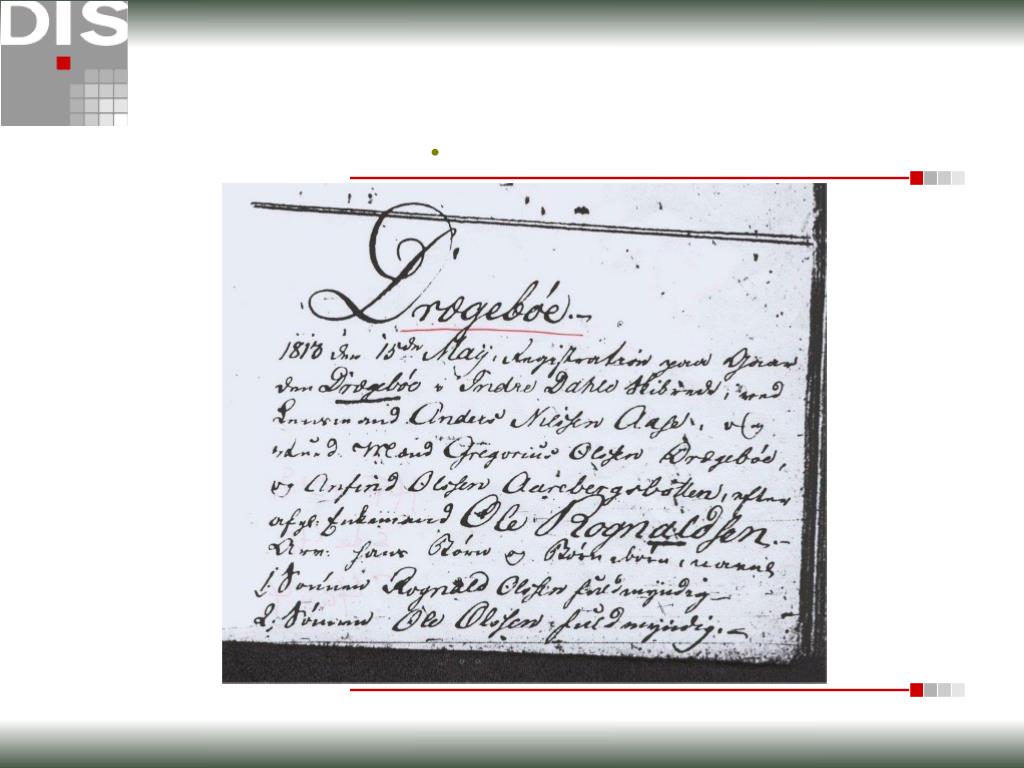 DIS
Drægebøe.-
1813 den 15de Maÿ, Registration paa Gaar
den Drægebøe i Indre Dahls Skibrede, ved
Lensmand Anders Nilssen Aase, og
Mand Gregorius Olssen Drægebøe,
og Anfind Olssen Aarebergsbotten, efter
afg: Enkemand Ole Rognaldsen.-
Arv: hans Börn og Börnebörn, navnl
1. Sönnen Rognald Olssen fuldmyndig
2. Sönnen Ole Olssen fuldmyndig.-